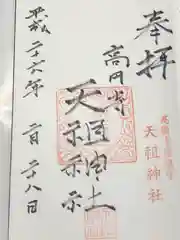 奉拝
高円寺
天祖神社
平成二十六年 月二十八日
天祖神社